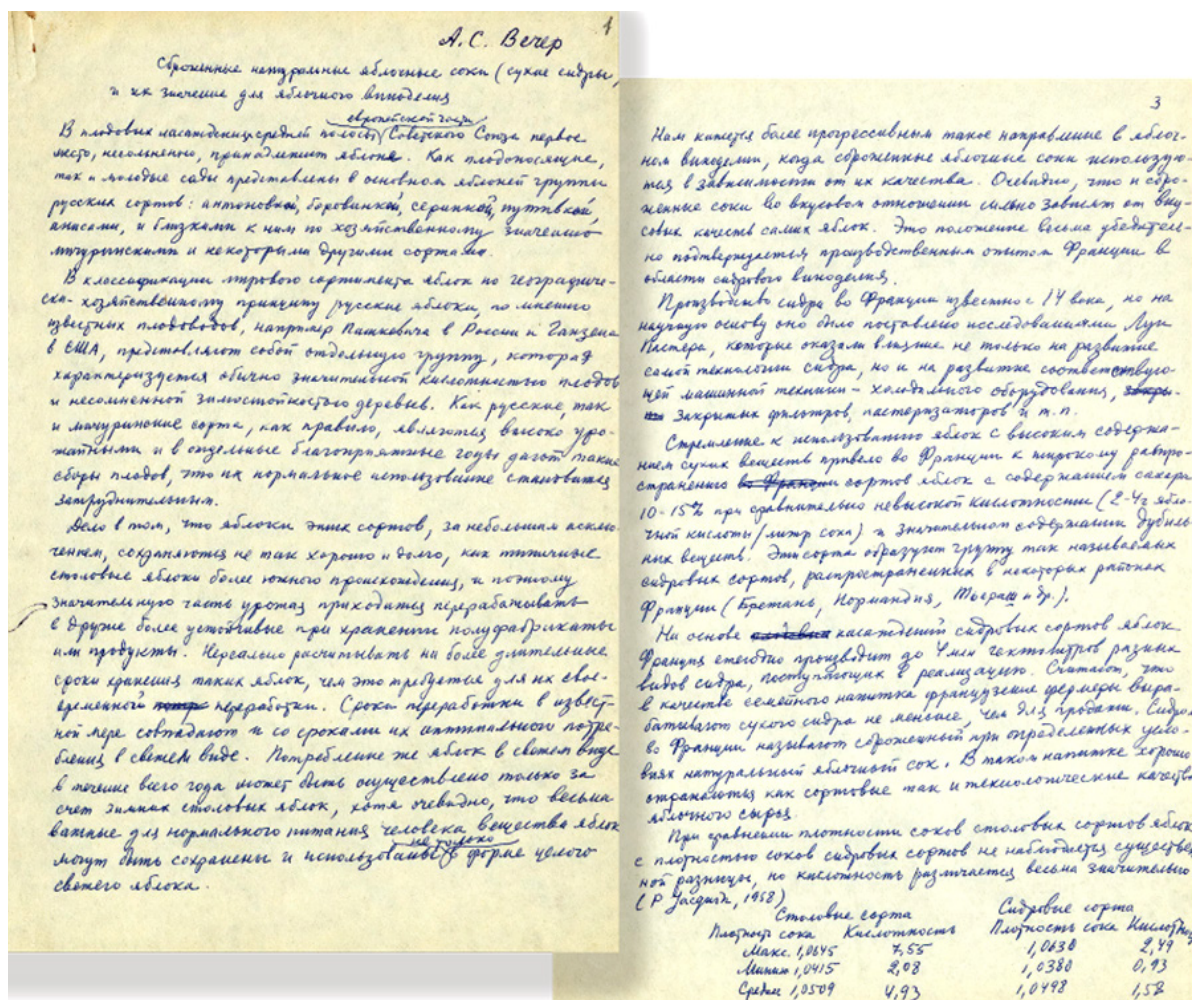 1
А.С. Вечер
Сброженные натуральные яблочные соки (сухие сидры,
и их значение для яблочного виноделия
европейской части
В плодовых насаждениях средней полосы Советского Союза первое
место, несомненно, принадлежит яблоне. Как плодоносящие,
так и молодые сады представлены в основном яблоней группы
русских сортов: антоновкой, боровинкой, серинкой, путивкой,
анисами, и близкими к ним по хозяйственному значению
мичуринскими и некоторыми другими сортами.
В классификации мирового сортимента яблок по географиче-
ски-хозяйственному принципу русские яблоки, по мнению
известных плодоводов, например Пашкевича в России и Ганзена
в США, представляют собой отдельную группу, которая
характеризуется обычно значительной кислотностью плодов
и несомненной зимостойкостью деревьев. Как русские, так
и мичуринские сорта, как правило, являются высоко уро-
жайными и в отдельные благоприятные годы дают такие
сборы плодов, что их нормальное использование становится
затруднительным.
Дело в том, что яблоки этих сортов, за небольшим исклю-
чением, сохраняются не так хорошо и долго, как типичные
столовые яблоки более южного происхождения, и поэтому
значительную часть урожая приходится перерабатывать
в другие более устойчивые при хранении полуфабрикаты
или продукты. Нереально расчитывать на более длительные
сроки хранения таких яблок, чем это требуется для их свое-
временной переработки. Сроки переработки в извест-
ной мере совпадают и со сроками их оптимального потре-
бления в свежем виде. Потребление же яблок в свежем виде
в течение всего года может быть осуществлено только за
счет зимних столовых яблок, хотя очевидно, что весьма
важные для нормального питания человека вещества яблок
не только
могут быть сохранены и использованы в форме целого
свежего яблока.
3
Нам кажется более прогрессивным такое направление в яблоч-
ном виноделии, когда сброженные яблочные соки использую-
тся в зависимости от их качества. Очевидно, что и сбро-
женные соки во вкусовом отношении сильно зависят от вку-
совых качеств самих яблок. Это положение весьма убедитель-
но подтверждается производственным опытом Франции в
области сидрового виноделия.
Производство сидра во Франции известно с 14 века, но на
научную основу оно было поставлено исследованиями Луи
Пастера, которые оказали влияние не только на развитие
самой технологии сидра, но и на развитие соответствую-
щей машинной техники - холодильного оборудования,
закрытых фильтров, пастеризаторов и т.п.
Стремление к использованию яблок с высоким содержа-
нием сухих веществ привело во Франции к широкому распро-
странению во Франции сортов яблок с содержанием сахара
10-15% при сравнительно невысокой кислотности (2-4г ябло-
чной кислоты/литр сока) и значительном содержании дубиль-
ных веществ. Эти сорта образуют группу так называемых
сидровых сортов, распространенных в некоторых районах
Франции (Бретань, Нормандия, и др.).
На основе насаждений сидровых сортов яблок
Франция ежегодно производит до 4 млн гектолитров разных
видов сидра, поступающих в реализацию. Считают, что
в качестве семейного напитка французские фермеры выра-
батывают сухого сидра не меньше, чем для продажи. Сидром
во Франции называют сброженный при определенных усло-
виях натуральный яблочный сок. В таком напитке хорошо
отражаются как сортовые так и технологические качества
яблочного сырья.
При сравнении плотности соков столовых сортов яблок
с плотностью соков сидровых сортов не наблюдается существен
ной разницы, но кислотность различается весьма значительно
(P 1958)
Столовые сорта Сидровые сорта
Плотность сока Кислотность Плотность сока Кислотнос
Макс. 1,0645 7,55 1,0630 2,49
Миним 1,0415 2,08 1,0380 0,93
Средн 1,0509 4,93 1,0498 1,58